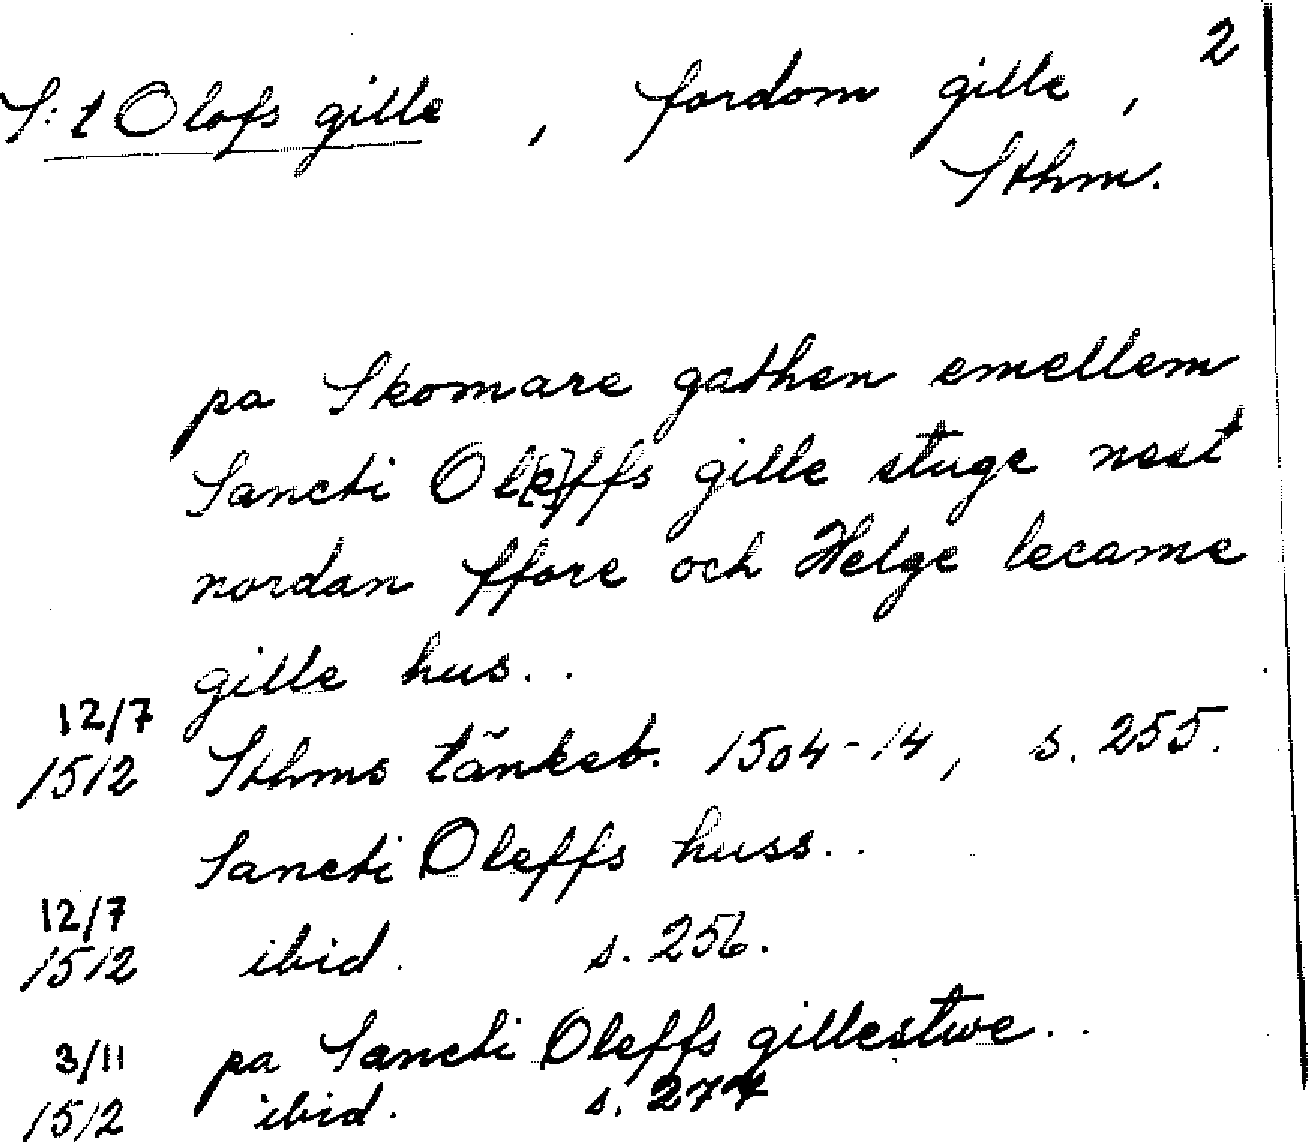 2
S:t Olofs gille, fordom gille,
Sthm.
pa Skomare gathen emellem
Sancti Ol[e]ffs gille stuge nest
nordan ffore och Helge lecame
gille hus..
12/7
1512 Sthms tänkeb. 1504-14, s. 255.
Sancti Oleffs huss..
12/7
1512 ibid. s. 256.
3/11 pa Sancti Oleffs gillestwe..
1512 ibid. s. 277